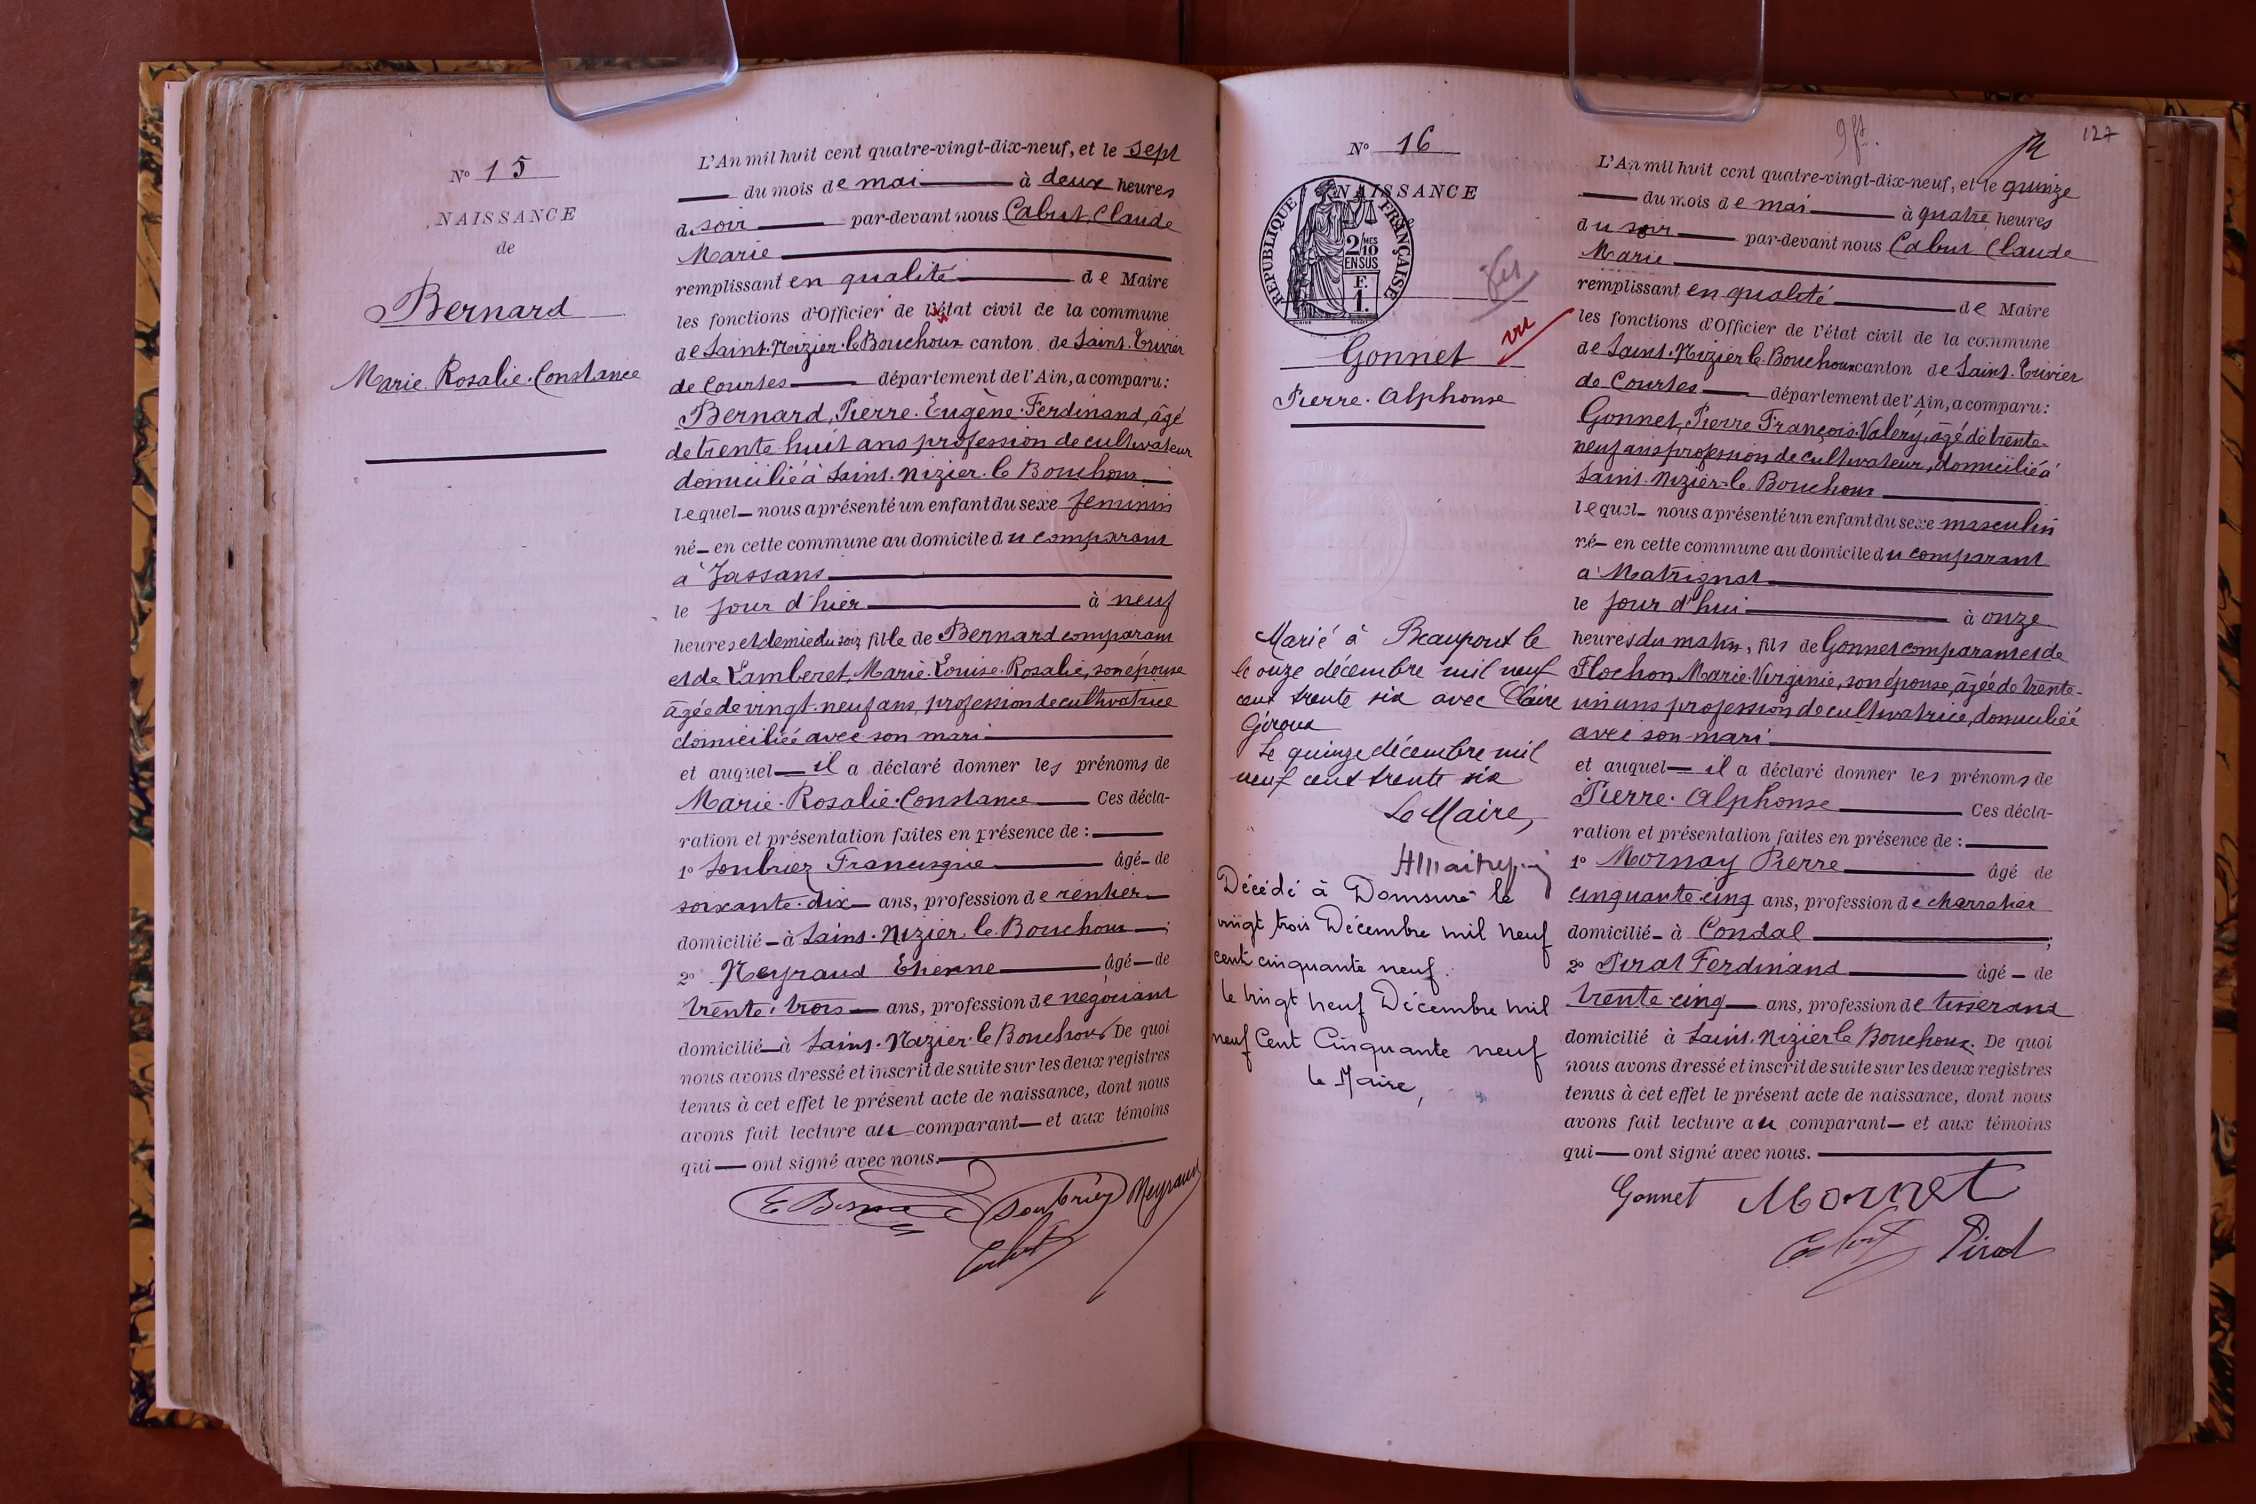 N° 15
NAISSANCE
de
Bernard
Marie. Rosalie. Constance
L'An mil huit cent quatre-vingt-dix-neuf, et le sept
du mois de mai à deux heures
du soir par-devant nous Cabut, Claude
Marie
remplissant en qualité de Maire
les fonctions d'Officier de l'état civil de la commune
de Saint. Nizier. le Bouchoux canton de Saint. Trivier
de Courtes département de l'Ain, a comparu:
Bernard, Pierre. Eugène. Ferdinand, âgé
de trente huit ans profession de cultivateur
domicilié à Saint. Nizier. le Bouchoux
lequel nous a présenté un enfant du sexe feminin
né en cette commune au domicile du comparant
à Jassans
le jour d'hier à neuf
heures et demie du soir, fille de Bernard comparant
et de Lamberet, Marie. Louise. Rosalie, son épouse
âgée de vingt. neuf ans, profession de cultivatrice
domiciliée avec son mari
et auquel il a déclaré donner les prénoms de
Marie. Rosalie. Constance Ces décla-
ration et présentation faites en présence de :
1° Soubriez Francisque âgé de
soixante. dix ans, profession de rentier
domicilié à Saint. Nizier. le Bouchoux ;
2° Neyraud Etienne âgé de
trente. trois ans, profession de négociant
domicilié à Saint. Nizier. le Bouchoux De quoi
nous avons dressé et inscrit de suite sur les deux registres
tenus à cet effet le présent acte de naissance, dont nous
avons fait lecture au comparant et aux témoins
qui ont signé avec nous.
E Bernard Soubriez Neyraud
Cabut
127
N° 16
NAISSANCE
RÉPUBLIQUE FRANÇAISE
2/10 MES
EN SUS
F.
1.
vu
Gonnet
Pierre. Alphonse
Marié à Beaupont le
le onze décembre mil neuf
cent trente six avec Claire
Géroux
Le quinze décembre mil
neuf cent trente six
Le Maire,
Décédé à Domsure le
vingt trois Décembre mil neuf
cent cinquante neuf.
le vingt neuf Décembre mil
neuf Cent Cinquante neuf
le Maire,
L'An mil huit cent quatre-vingt-dix-neuf, et le quinze
du mois de mai à quatre heures
du soir par-devant nous Cabut Claude
Marie
remplissant en qualité de Maire
les fonctions d'Officier de l'état civil de la commune
de Saint. Nizier le Bouchoux canton de Saint. Trivier
de Courtes département de l'Ain, a comparu:
Gonnet, Pierre François. Valéry, âgé de trente-
neuf ans profession de cultivateur, domicilié à
Saint. Nizier. le. Bouchoux
lequel nous a présenté un enfant du sexe masculin
né en cette commune au domicile du comparant
à Matrignat
le jour d'hui à onze
heures du matin, fils de Gonnet comparant et de
Flochon Marie. Virginie, son épouse, âgée de trente-
un ans profession de cultivatrice, domiciliée
avec son mari
et auquel il a déclaré donner les prénoms de
Pierre. Alphonse Ces décla-
ration et présentation faites en présence de :
1° Mornay Pierre âgé de
cinquante. cinq ans, profession de charretier
domicilié à Condal ;
2° Pirat Ferdinand âgé de
trente. cinq ans, profession de tisserand
domicilié à Saint. Nizier le Bouchoux. De quoi
nous avons dressé et inscrit de suite sur les deux registres
tenus à cet effet le présent acte de naissance, dont nous
avons fait lecture au comparant et aux témoins
qui ont signé avec nous.
Gonnet Mornet
Cabut Pirat